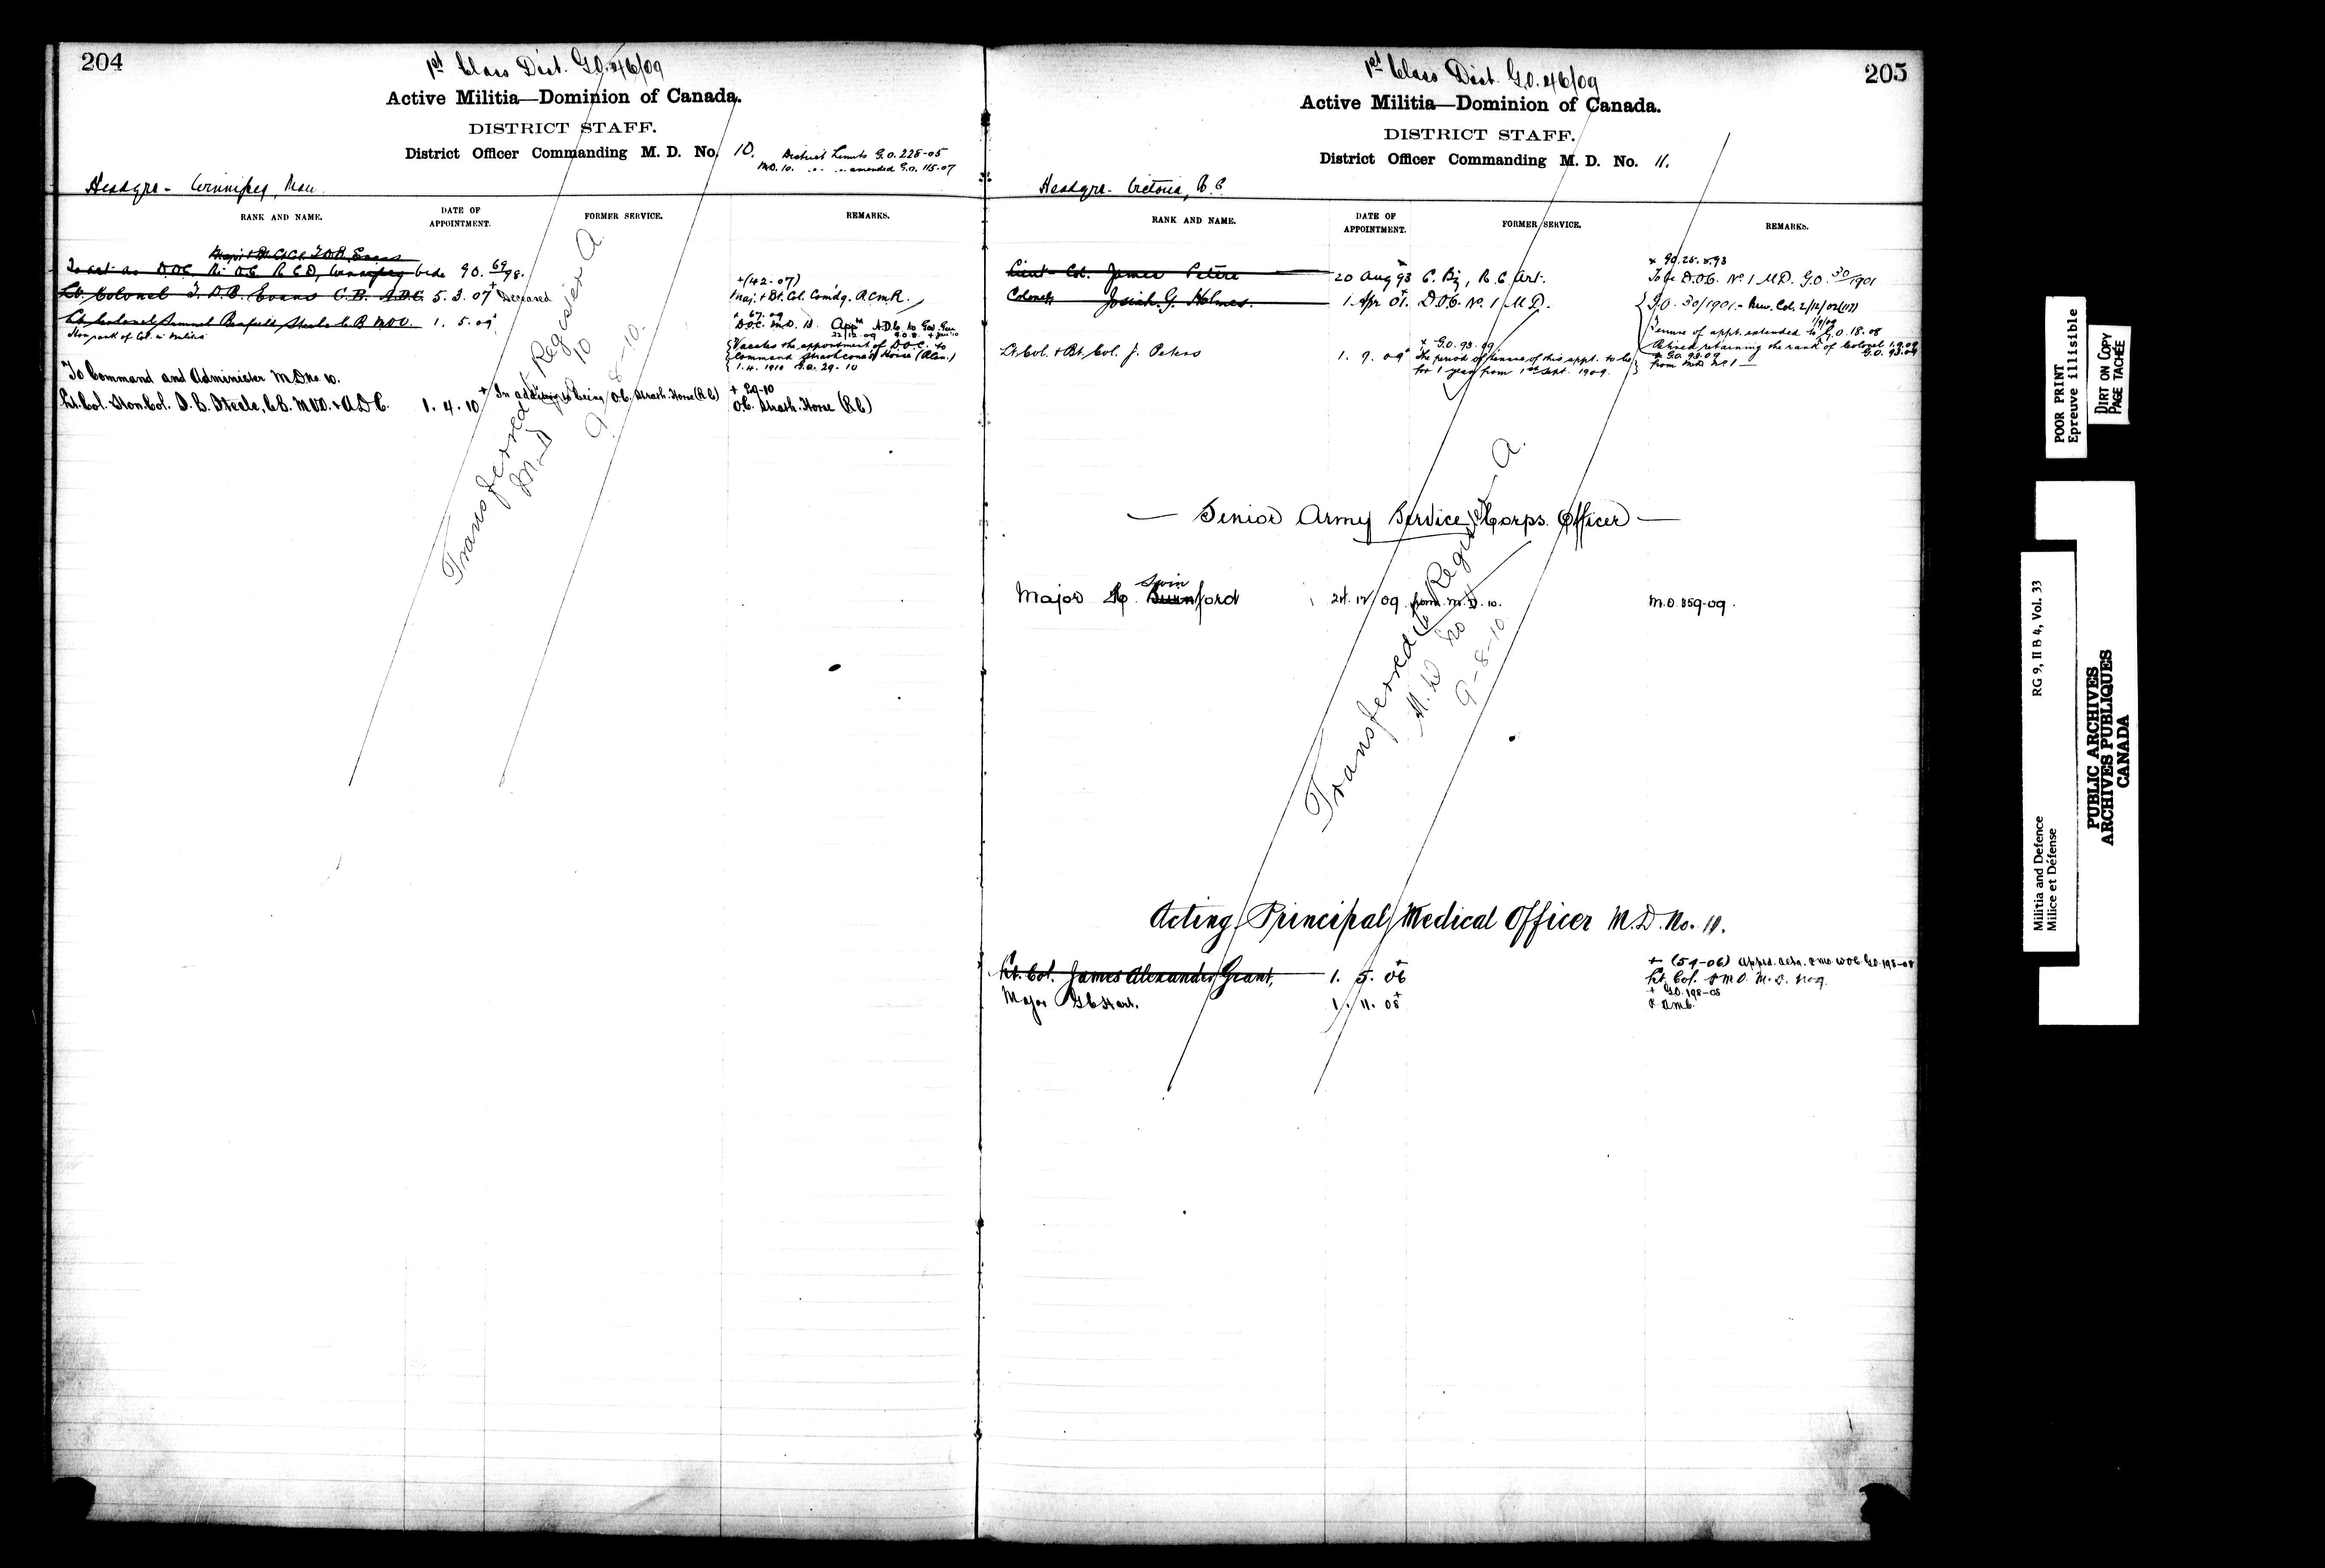 204
1st Class Dist. G.O. 46/09
Active Militia—Dominion of Canada.
DISTRICT STAFF.
District Officer Commanding M. D. No. 10.
District Limits G.O. 228-05
M.D. 10. " " amended G.O. 115-07
Headqrs - Winnipeg, Man.
RANK AND NAME.
DATE OF APPOINTMENT.
FORMER SERVICE.
REMARKS.
Major & Bt. Lt. Col. T.D.B. Evans
To act as D.O.C. R.C.D., Winnipeg vide G.O. 69/98.
Lt. Colonel T. D. B. Evans C.B. A.D.C. 5. 3. 07+ Deceased
+(42-07)
Maj. & Bt. Col. Comdg. R.C.M.R.
Lt. Colonel Samuel Benfield Steele C.B. M.V.O. 1. 5. 09+
Hon. rank of Col. in Militia
+ 67-09
D.O.C. M.D. 13. Appd A.D.C. to Gov. Gen.
22/12-09
Vacates the appointment of D.O.C. to
Command Strathcona's Horse (R.C.)
1. 4. 1910 G.O. 29-10
To Command and Administer M.D. No 10.
Lt. Col. & Hon. Col. S. B. Steele, C.B. M.V.O. & A.D.C. 1. 4. 10 + In addition to being O.C. Strath. Horse (R.C.)
+ 29-10
O.C. Strath. Horse (R.C.)
Transferred to Register A
M.D. 10
9-8-10.
205
1st Class Dist. G.O. 46/09
Active Militia—Dominion of Canada.
DISTRICT STAFF.
District Officer Commanding M. D. No. 11.
Headqrs - Victoria, B.C.
RANK AND NAME.
DATE OF APPOINTMENT.
FORMER SERVICE.
REMARKS.
Lieut-Col. James Peters 20 Aug 93 C. By, R.C. Art.
x G.O. 25. 8. 93
To be D.O.C. No. 1 M.D. G.O. 30/1901
Colonel Josiah G. Holmes. 1. Apr 01. D.O.C. No. 1 M.D.
G.O. 30/1901 - Rev. Col. 2/12/02 (117)
Tenure of appt. extended to 1/9/09 G.O. 18-08
Retired retaining the rank of Colonel 1.9.09
G.O. 93.09
Lt. Col. & Bt. Col. J. Peters 1. 9. 09+
+ G.O. 93-09
The period of tenure of this appt. to be
for 1 year from 1st Sept. 1909.
+ G.O. 93.09
from M.D. No. 1
Senior Army Service Corps. Officer
Major Swinford 24. 12/09 from M.D. 10. M.O. 359-09.
Transferred to Register A.
M.D. No 11
9-8-10
Acting Principal Medical Officer M.D. No. 11.
Lt. Col. James Alexander Grant, 1. 5. 06+
+ (59-06) Appd. Actg. P.M.O. W.O.C. G.O. 198-08
Lt. Col. P.M.O. M.D. No 9.
Major G C Hart. 1. 11. 08+
+ G.O. 198-08
POOR PRINT
Epreuve illisible
DIRT ON COPY
PAGE TACHÉE
RG 9, II B 4, Vol. 33
Militia and Defence
Milice et Défense
PUBLIC ARCHIVES
ARCHIVES PUBLIQUES
CANADA